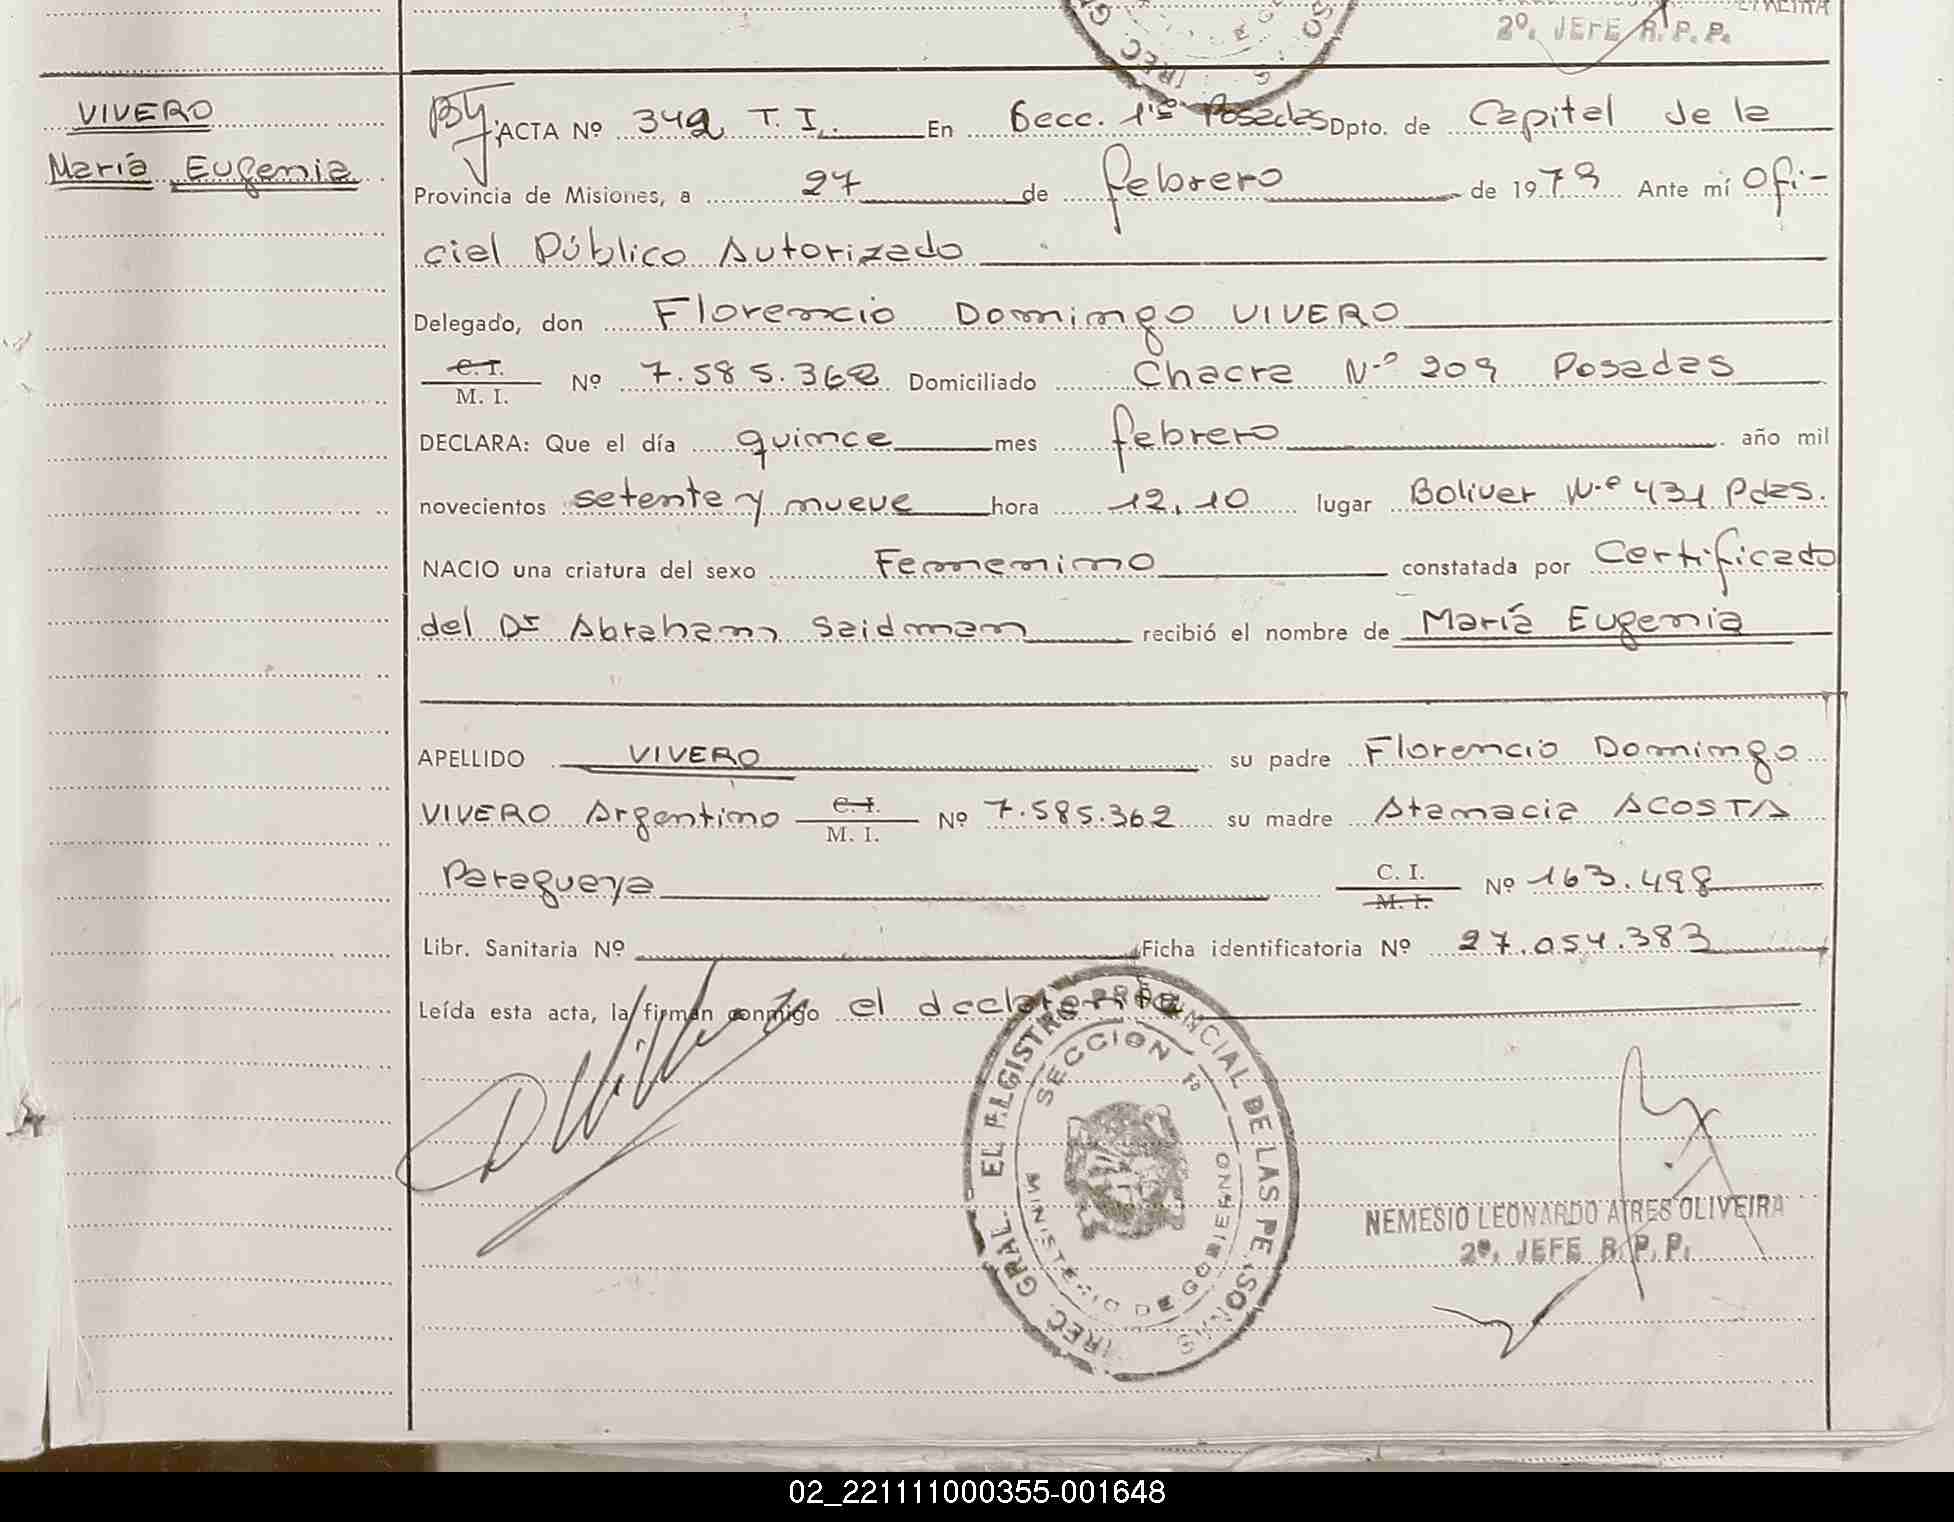 2º. JEFE R. P. P.
VIVERO
María Eugenia
ACTA Nº 342 T. I. En Secc. 1ra Posadas Dpto. de Capital de la
Provincia de Misiones, a 27 de febrero de 1979 Ante mí Ofi-
cial Público Autorizado
Delegado, don Florencio Domingo VIVERO
C. I.
M. I. Nº 7.585.362 Domiciliado Chacra N.º 209 Posadas
DECLARA: Que el día quince mes febrero año mil
novecientos setenta y nueve hora 12,10 lugar Bolivar N.º 431 Pdas.
NACIO una criatura del sexo Femenino constatada por Certificado
del Dr Abraham Saidman recibió el nombre de María Eugenia
APELLIDO VIVERO su padre Florencio Domingo
VIVERO Argentino C. I. M. I. Nº 7.585.362 su madre Atanacia ACOSTA
Paraguaya C. I. M. I. Nº 163.498
Libr. Sanitaria Nº Ficha identificatoria Nº 27.054.383
Leída esta acta, la firman conmigo el declarante
GRAL. EL REGISTRO PROVINCIAL DE LAS PERSONAS
SECCION
MINISTERIO DE GOBIERNO
NEMESIO LEONARDO AIRES OLIVEIRA
2º. JEFE R. P. P.
02_221111000355-001648